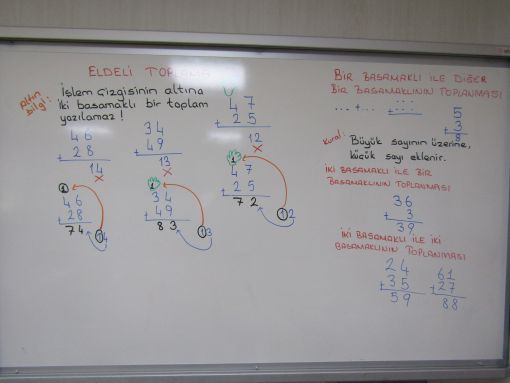 ELDELİ TOPLAMA
altın bilgi:
İşlem çizgisinin altına
iki basamaklı bir toplam
yazılamaz!
46
+ 28
14
x
34
+ 49
13
x
47
+ 25
12
x
1
46
+ 28
74
14
1
34
+ 49
83
13
1
47
+ 25
72
12
BİR BASAMAKLI İLE DİĞER
BİR BASAMAKLININ TOPLANMASI
... + ...
+ ...
5
+ 3
8
Kural: Büyük sayının üzerine,
küçük sayı eklenir.
İKİ BASAMAKLI İLE BİR
BASAMAKLININ TOPLANMASI
36
+ 3
39
İKİ BASAMAKLI İLE İKİ
BASAMAKLININ TOPLANMASI
24
+ 35
59
61
+ 27
88